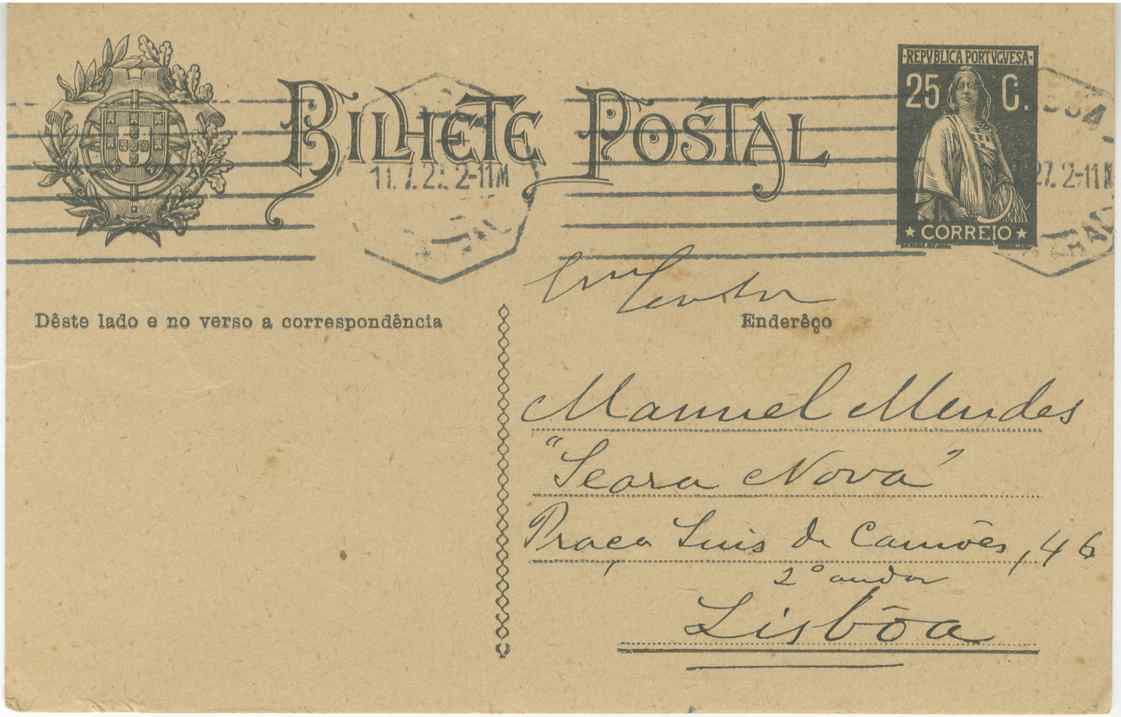 BILHETE POSTAL
REPVBLICA PORTVGVESA
25 C.
CORREIO
2-11M
27. 2-11M
Dêste lado e no verso a correspondência
Endereço
Exmo Senhor
Manuel Mendes
"Seara Nova"
Praça Luis de Camões, 46
2º andar
Lisbôa